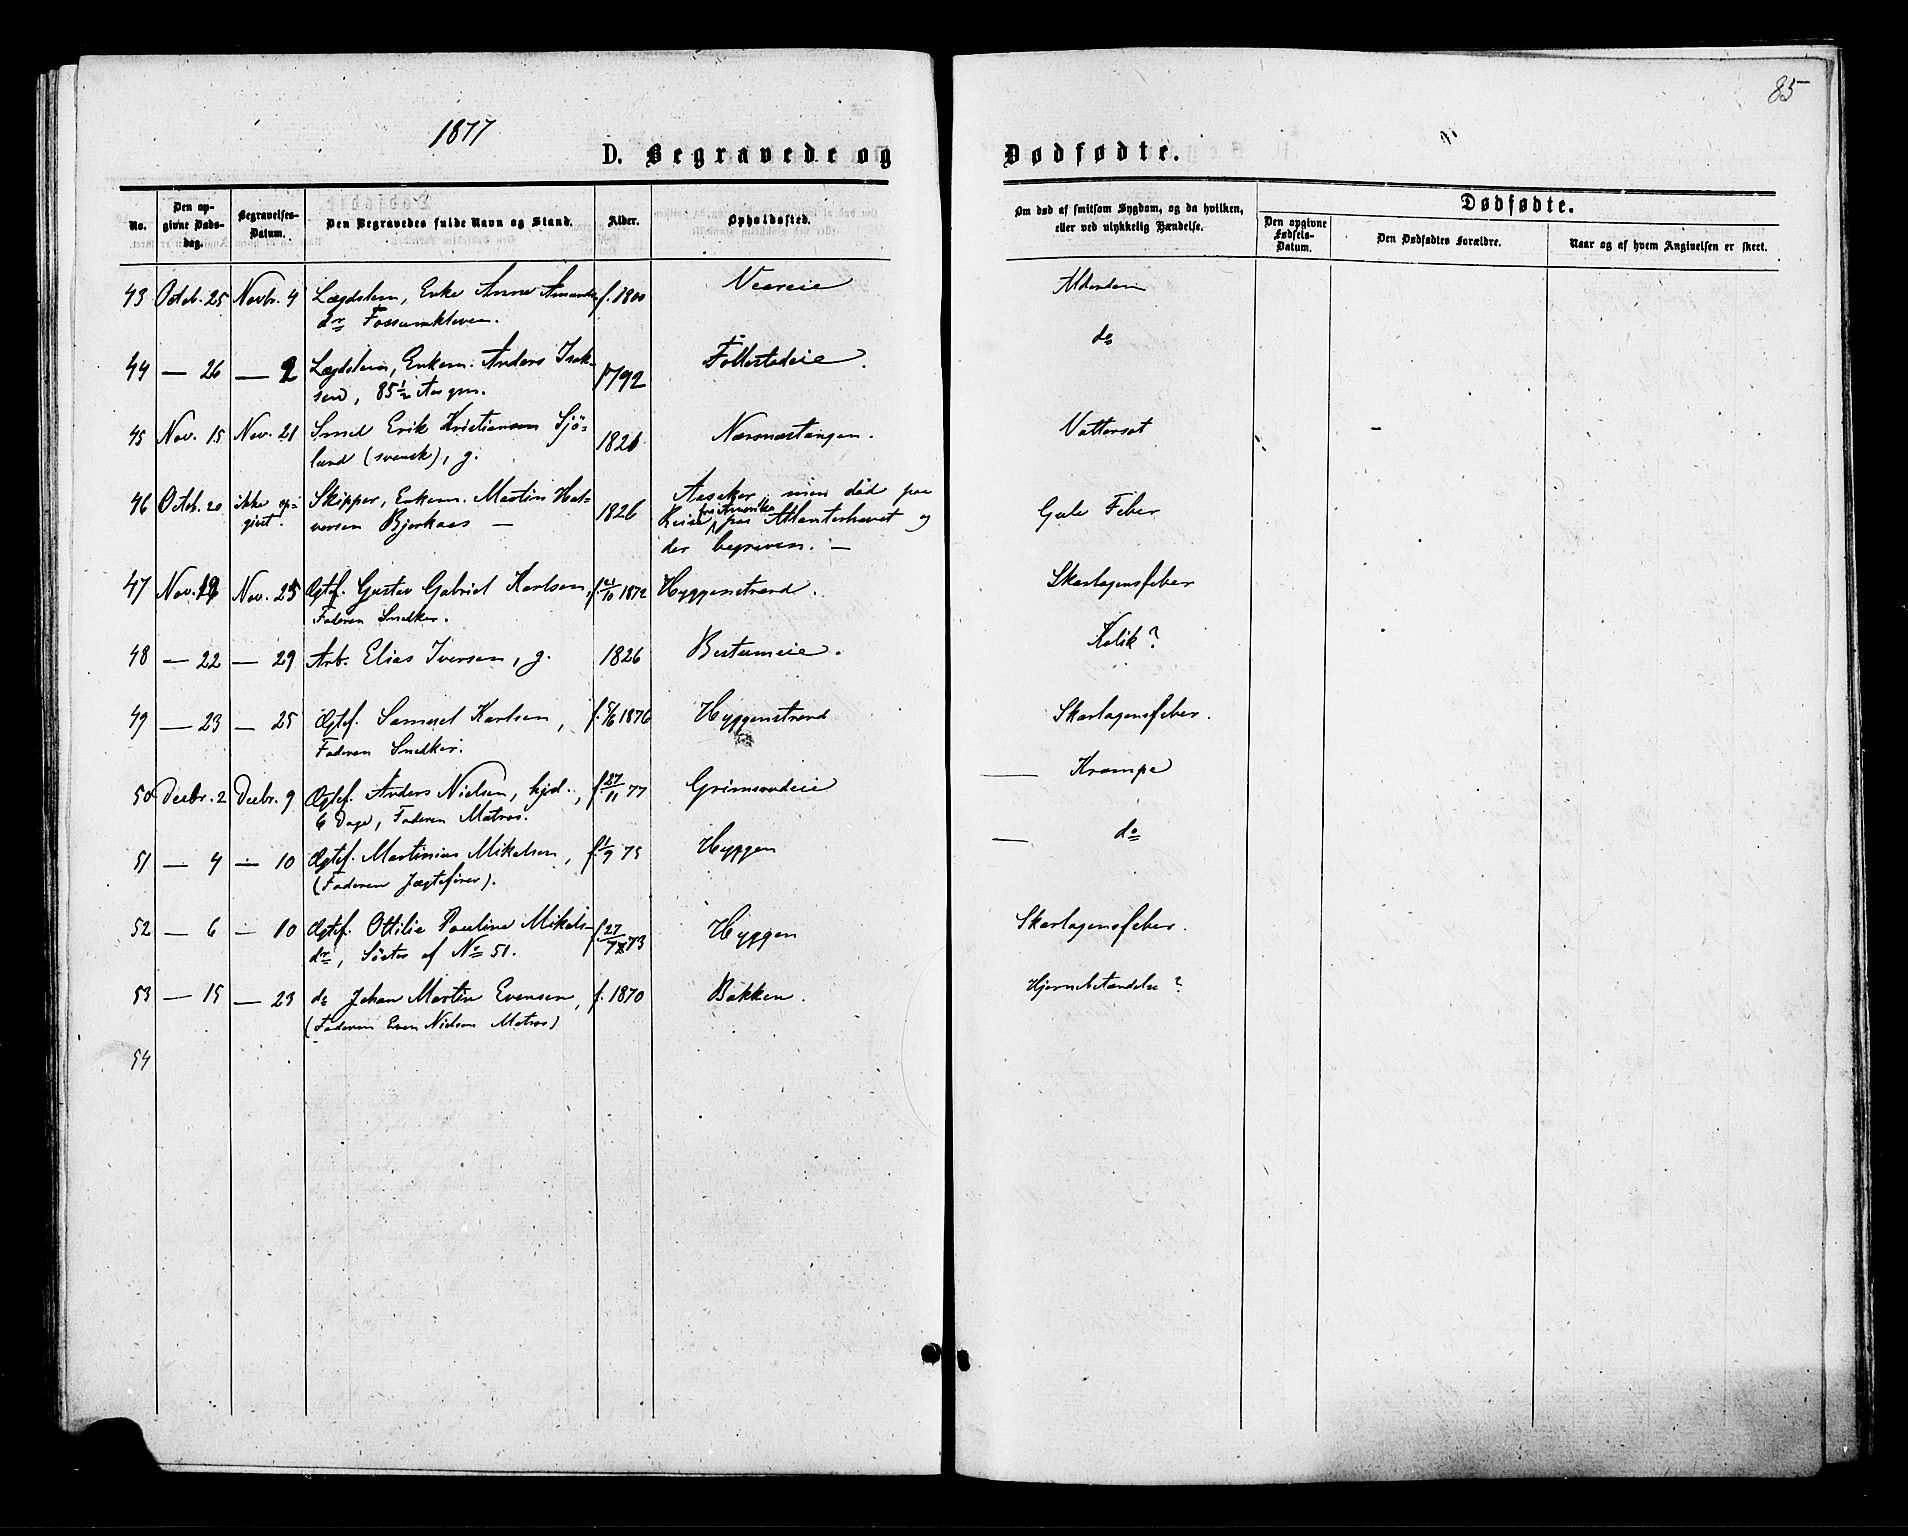 85
1877
D. Begravede og Dødfødte.
No. Den opgivne Dødsdag. Begravelses-Datum. Den Begravedes fulde Navn og Stand. Alder. Opholdssted. Om død af smitsom Sygdom, og da hvilken, eller ved ulykkelig Hændelse. Dødfødte. Den opgivne Fødsels-Datum. Den Dødfødtes Forældre. Naar og af hvem Angivelsen er skeet.
43 Octob. 25 Novbr. 4 Lægdslem, Enke Anne Amunds- f. 1800 Veareie Alderdom
dr Fossumkleven.
44 — 26 — 2 Lægdslem, Enkem. Anders Isak- 1792 Follestadeie. do
sen, 85½ Aar gm.
45 Nov. 15 Nov. 21 Smed Erik Kristiansen Sjö- 1826 Nærsnæstangen. Vattersot
lund (svensk), g.
46 Octob. 20 ikke op- Skipper, Enkem. Martin Hal- 1826 Aasaker, men död paa Gule Feber
givet. versen Bjerkaas — Reise fra Amerika paa Atlanterhavet og
der begraven. —
47 Nov. 19 Nov. 25 Ægtef. Gustav Gabriel Karlsen, f. 21/10 1872 Hyggenstrand. Skarlagensfeber
Faderen Snedker.
48 — 22 — 29 Arb. Elias Iversen, g. 1826 Bestumeie. Kolik?
49 — 23 — 25 Ægtef. Samuel Karlsen, f. 5/6 1876 Hyggenstrand Skarlagensfeber.
Faderen Snedker.
50 Decbr. 2 Decbr. 9 Ægtef. Anders Nielsen, hjd., f. 27/11 77 Grimsrudeie — Krampe
6 Dage, Faderen Matros.
51 — 4 — 10 Ægtef. Martinius Mikelsen, f. 1/9 75 Hyggen — do
(Faderen Jægtefører).
52 — 6 — 10 Ægtef. Ottilie Pauline Mikels- f. 27/7 73 Hyggen Skarlagensfeber.
dr, Söster af No 51.
53 — 15 — 23 do Johan Martin Evensen, f. 1870 Bakken. Hjernebetændelse?
(Faderen Even Nielsen Matros)
54